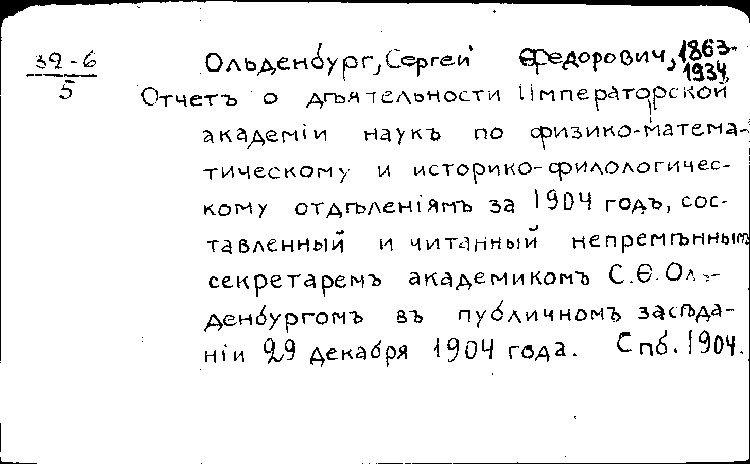 39-6
5
Ольденбург, Сергей Федорович, 1863-
1934
Отчетъ о дѣятельности Императорской
академіи наукъ по физико-матема-
тическому и историко-филологичес-
кому отдѣленіямъ за 1904 годъ, сос-
тавленный и читанный непремѣнным
секретаремъ академикомъ С.Ѳ. Оль-
денбургомъ въ публичномъ засѣда-
ніи 29 декабря 1904 года. Спб. 1904.